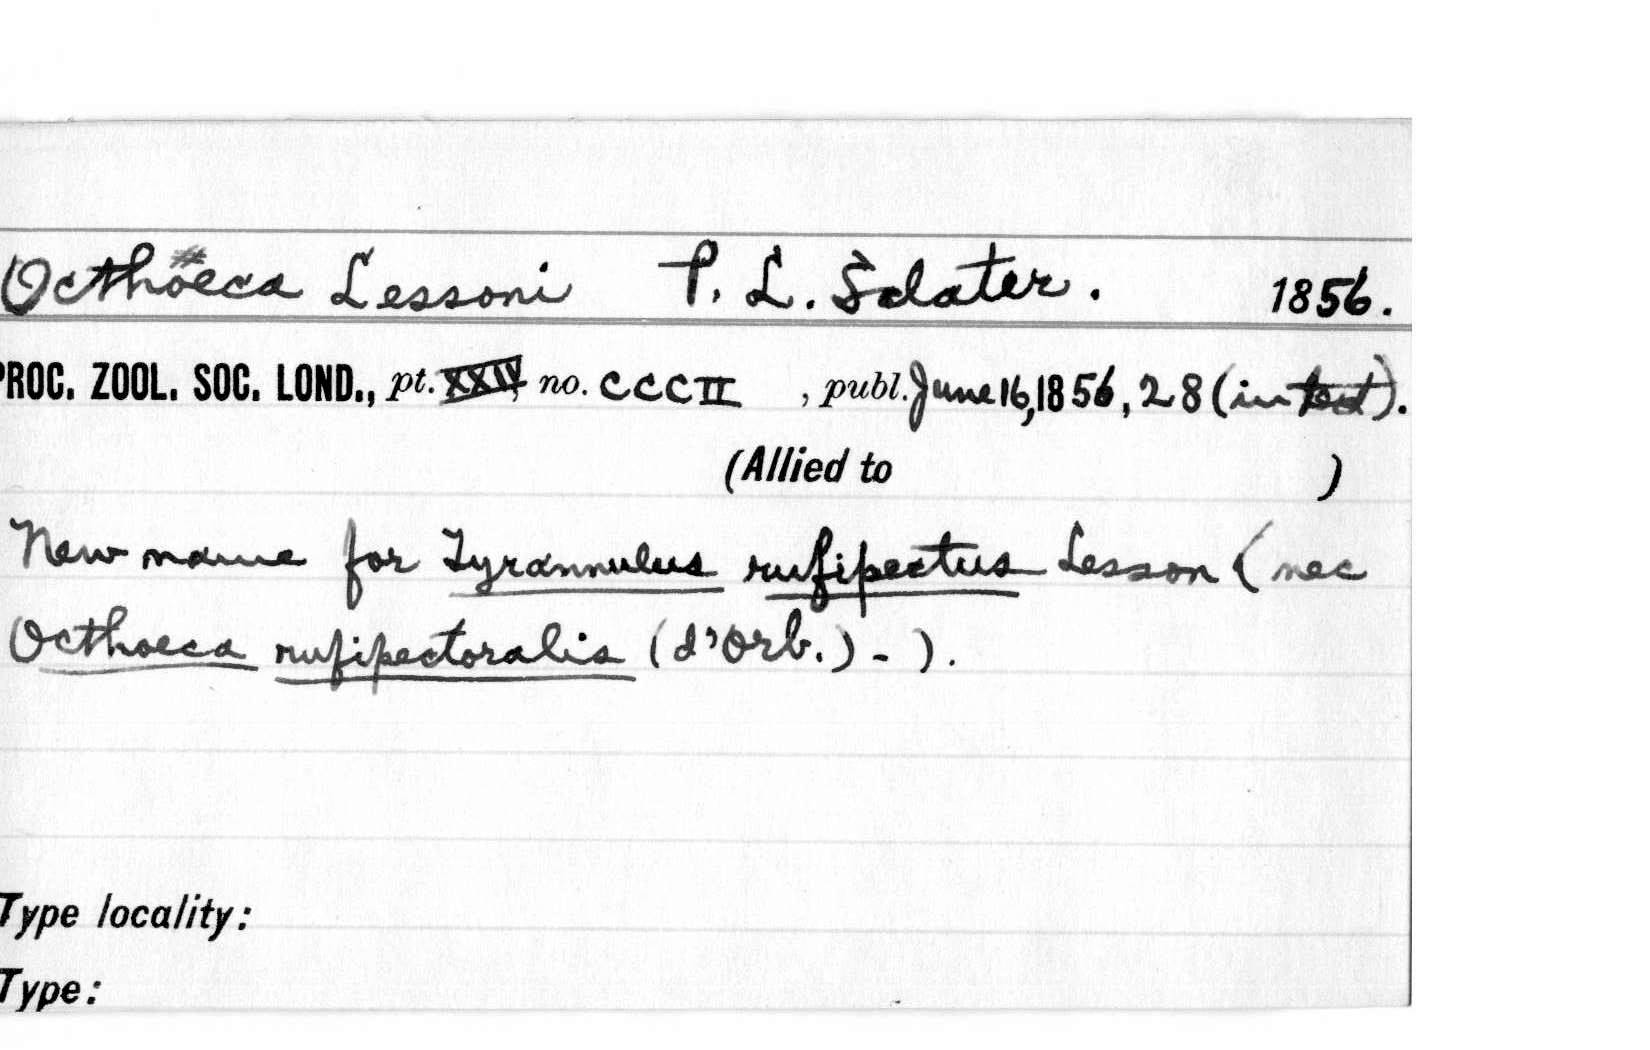 Octhoeca Lessoni P. L. Sclater. 1856.
PROC. ZOOL. SOC. LOND., pt. XXIV, no. CCCII , publ. June 16, 1856, 28 (in text).
(Allied to )
New name for Tyrannulus rufipectus Lesson (nec
Octhoeca rufipectoralis (d'Orb.) - ).
Type locality:
Type: